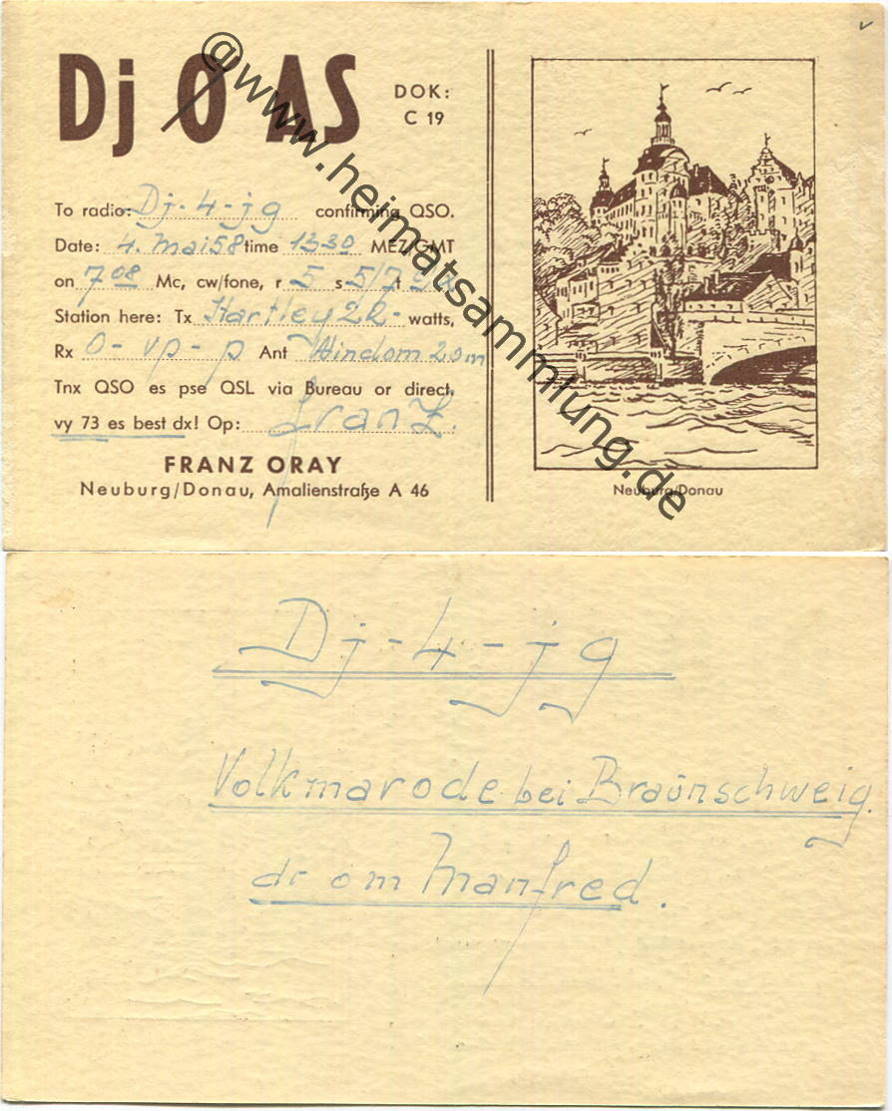 Dj Ø AS
DOK:
C 19
To radio: Dj-4-jg confirming QSO.
Date: 4. Mai 58 time 1330 MEZ/GMT
on 7 08 Mc, cw/fone, r 5 s 5/7 t
Station here: Tx Hartley watts,
Rx 0-vp-p Ant Windom 20m
Tnx QSO es pse QSL via Bureau or direct,
vy 73 es best dx! Op: Franz.
FRANZ ORAY
Neuburg/Donau, Amalienstraße A 46
Neuburg/Donau
@www.heimatsammlung.de
Dj-4-jg
Volkmarode bei Braunschweig.
dr om Manfred.